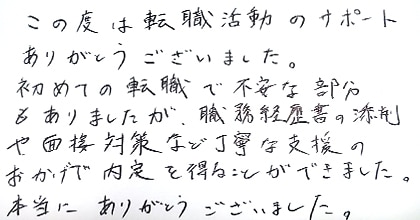 この度は転職活動のサポート
ありがとうございました。
初めての転職で不安な部分
もありましたが、職務経歴書の添削
や面接対策など丁寧な支援の
おかげで内定を得ることができました。
本当にありがとうございました。